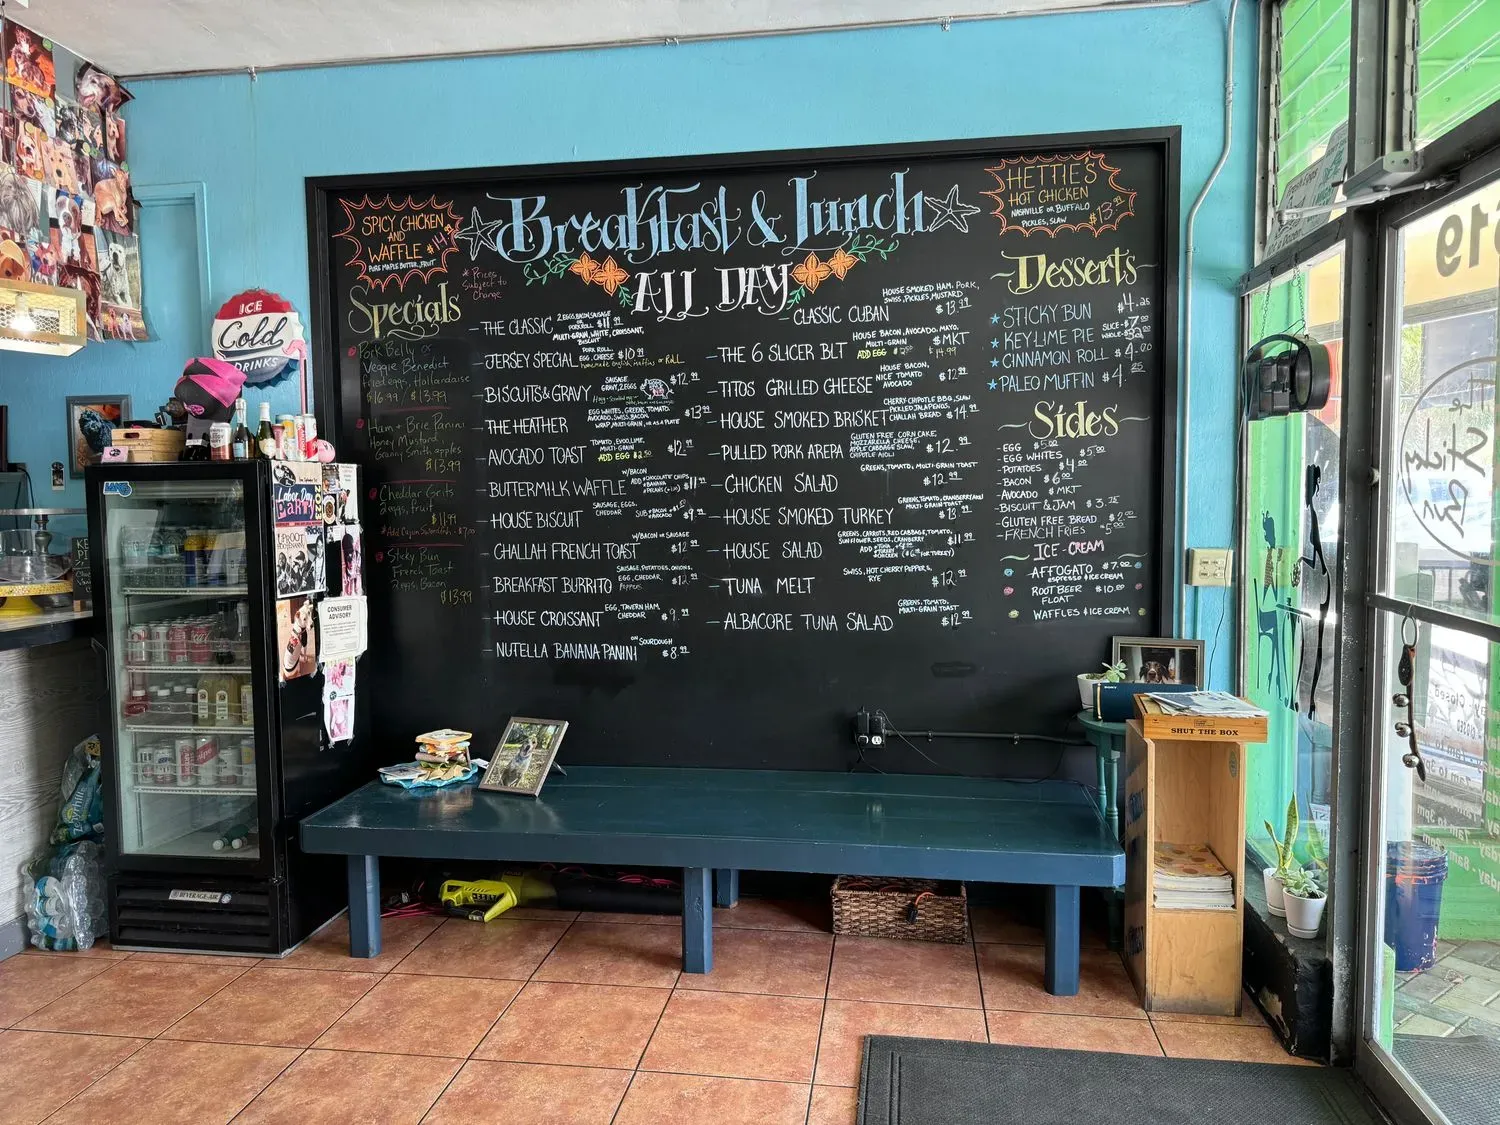 SPICY CHICKEN
AND
WAFFLE $14
PURE MAPLE BUTTER, FRUIT
Breakfast & Lunch
ALL DAY
HETTIE'S
HOT CHICKEN
NASHVILLE OR BUFFALO
PICKLES, SLAW $13.
* Prices
Subject to
Change
Specials
Pork Belly or
Veggie Benedict
fried eggs, Hollandaise
$16.99 / $13.99
Ham + Brie Panini
Honey Mustard
Granny Smith apples
$13.99
Cheddar Grits
2 eggs, fruit
$11.99
Sticky Bun
French Toast
2 eggs, Bacon
$13.99
- THE CLASSIC 2 EGGS, BACON, SAUSAGE
OR PORK ROLL $11.99
MULTI-GRAIN, WHITE, CROISSANT,
BISCUIT
JERSEY SPECIAL PORK ROLL,
EGG, CHEESE $10.99
homemade English Muffins or Roll
- BISCUITS & GRAVY SAUSAGE
GRAVY, 2 EGGS $12.99
- THE HEATHER EGG WHITES, GREENS, TOMATO,
AVOCADO, SWISS, BACON,
WRAP, MULTI-GRAIN, OR AS A PLATE $13.99
- AVOCADO TOAST TOMATO, EVOO, LIME,
MULTI-GRAIN $12.
ADD EGG $2.50
- BUTTERMILK WAFFLE W/BACON
ADD CHOCOLATE CHIPS
BANANA
PECANS $11.
- HOUSE BISCUIT SAUSAGE, EGGS,
CHEDDAR $9.
- CHALLAH FRENCH TOAST W/BACON OR SAUSAGE
$12
- BREAKFAST BURRITO SAUSAGE, POTATOES, ONIONS,
EGG, CHEDDAR,
Peppers $12.99
- HOUSE CROISSANT EGG, TAVERN HAM
CHEDDAR $9.
- NUTELLA BANANA PANINI ON SOURDOUGH
$8.99
CLASSIC CUBAN HOUSE SMOKED HAM, PORK,
SWISS, PICKLES, MUSTARD
$13.99
- THE 6 SLICER BLT HOUSE BACON, AVOCADO, MAYO,
MULTI-GRAIN $MKT
ADD EGG $14.99
TITOS GRILLED CHEESE HOUSE BACON,
NICE TOMATO
AVOCADO $12.99
- HOUSE SMOKED BRISKET CHERRY CHIPOTLE BBQ, SLAW
PICKLED JALAPENOS,
CHALLAH BREAD $14.
- PULLED PORK AREPA GLUTEN FREE CORN CAKE,
MOZZARELLA CHEESE,
APPLE CABBAGE SLAW,
CHIPOTLE AIOLI $12.99
- CHICKEN SALAD GREENS, TOMATO, MULTI-GRAIN TOAST
$12.99
- HOUSE SMOKED TURKEY GREENS, TOMATO, CRANBERRY MAYO
MULTI-GRAIN TOAST
$13.
- HOUSE SALAD GREENS, CARROTS, RED CABBAGE, TOMATO,
SUNFLOWER SEEDS, CRANBERRY $11.99
- TUNA MELT SWISS, HOT CHERRY PEPPERS,
RYE $12.99
- ALBACORE TUNA SALAD GREENS, TOMATO,
MULTI-GRAIN TOAST
$12.99
Desserts
STICKY BUN $4.25
KEY LIME PIE SLICE - $7.00
WHOLE
CINNAMON ROLL $4.00
PALEO MUFFIN $4.25
Sides
- EGG
- EGG WHITES $5.00
- POTATOES $4.00
- BACON $6.00
- AVOCADO $MKT
- BISCUIT & JAM $3.
- GLUTEN FREE BREAD $2.00
- FRENCH FRIES 5.00
ICE-CREAM
AFFOGATO $7.00
ESPRESSO & ICE CREAM
ROOT BEER $10.00
FLOAT
WAFFLES & ICE CREAM
ICE
Cold
DRINKS
Labor Day
PARTY
CONSUMER
ADVISORY
BEVERAGE-AIR
SONY
SHUT THE BOX
519
The
Sticky
Bun
Zephyrhills